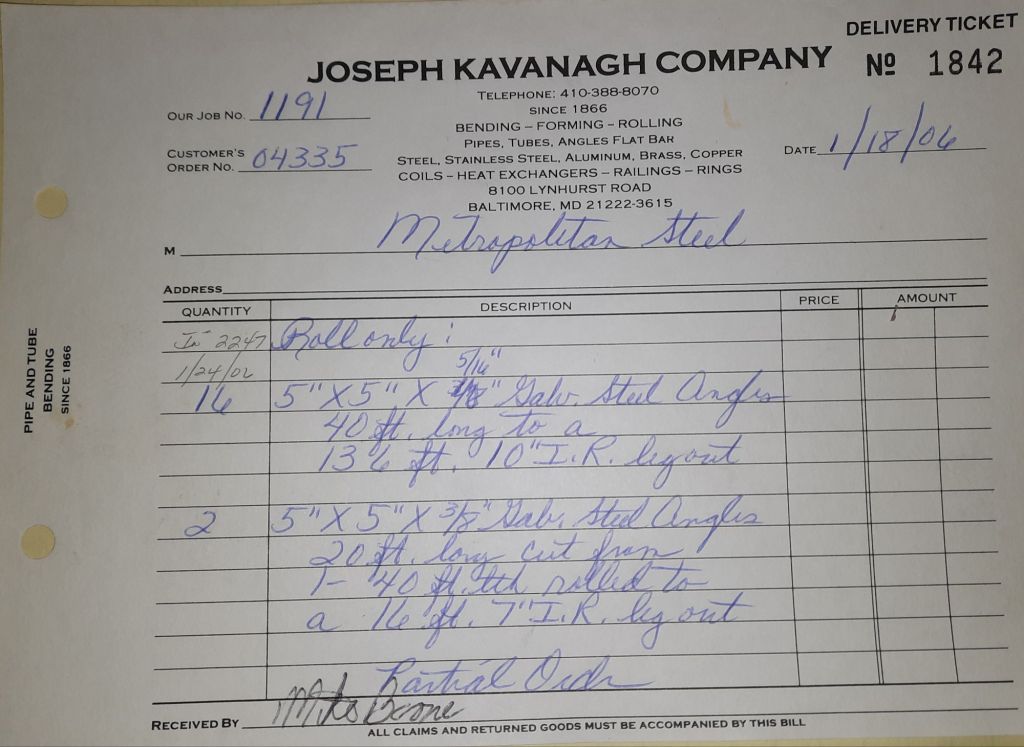 DELIVERY TICKET
Nº 1842
JOSEPH KAVANAGH COMPANY
TELEPHONE: 410-388-8070
SINCE 1866
BENDING – FORMING – ROLLING
PIPES, TUBES, ANGLES FLAT BAR
STEEL, STAINLESS STEEL, ALUMINUM, BRASS, COPPER
COILS – HEAT EXCHANGERS – RAILINGS – RINGS
8100 LYNHURST ROAD
BALTIMORE, MD 21222-3615
OUR JOB NO. 1191
CUSTOMER'S
ORDER NO. 04335
DATE 1/18/06
M Metropolitan Steel
ADDRESS
QUANTITY DESCRIPTION PRICE AMOUNT
2247 Roll only:
1/24/06 5/16"
16 5" X 5" X 3/8" Galv. Steel Angles
40 ft. long to a
136 ft. 10" I.R. leg out
2 5" X 5" X 3/8" Galv. Steel Angles
20 ft. long cut from
1- 40 ft. lth rolled to
a 16 ft. 7" I.R. leg out
Partial Order
RECEIVED BY Mike Boone
ALL CLAIMS AND RETURNED GOODS MUST BE ACCOMPANIED BY THIS BILL
PIPE AND TUBE
BENDING
SINCE 1866